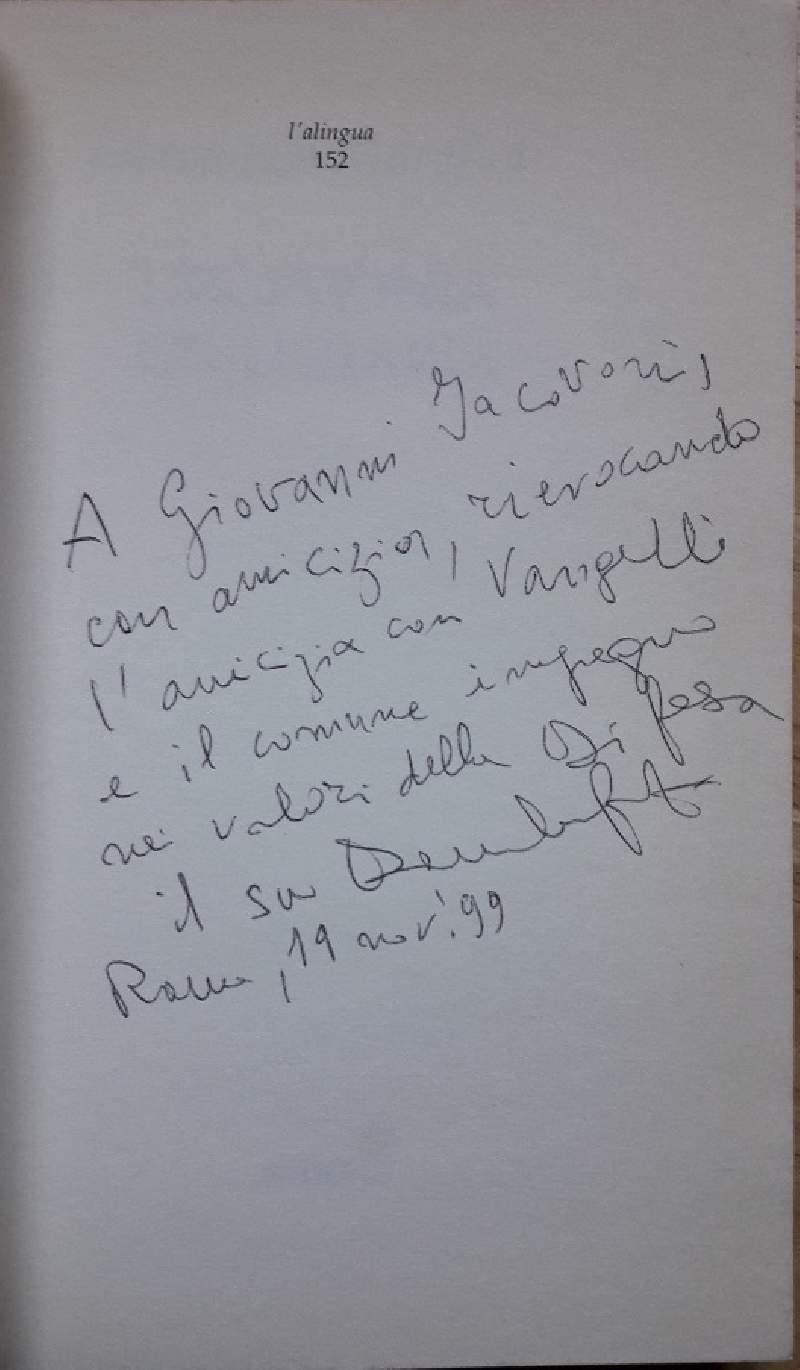 l'alingua
152
A Giovanni Jacovoni,
con amicizia, rievocando
l'amicizia con Vangelli
e il comune impegno
nei valori della Difesa
il suo
Roma, 19 nov. '99